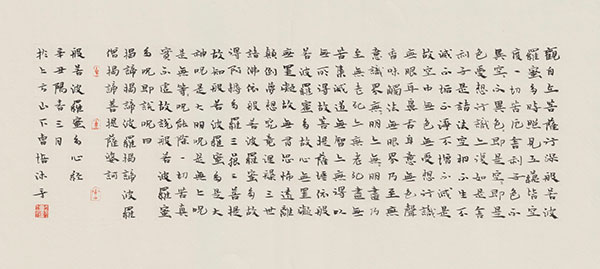 觀自在菩薩行深般若波
羅蜜多時照見五蘊皆空
度一切苦厄舍利子色不
異空空不異色色即是空空即是
色受想行識亦復如是舍
利子是諸法空相不生不
滅不垢不淨不增不減是
故空中無色無受想行識
無眼耳鼻舌身意無色聲
香味觸法無眼界乃至無
意識界無無明亦無無明盡乃
至無老死亦無老死盡無
苦集滅道無智亦無得以
無所得故菩提薩埵依般
若波羅蜜多故心無罣礙
無罣礙故無有恐怖遠離
顛倒夢想究竟涅槃三世
諸佛依般若波羅蜜多故
得阿耨多羅三藐三菩提
故知般若波羅蜜多是大
神咒是大明咒是無上咒
是無等等咒能除一切苦真
實不虛故說般若波羅蜜
多咒即說咒曰
揭諦揭諦波羅揭諦波羅
僧揭諦菩提薩婆訶
般若波羅蜜多心經
辛丑陽春三月
於上方山下雷